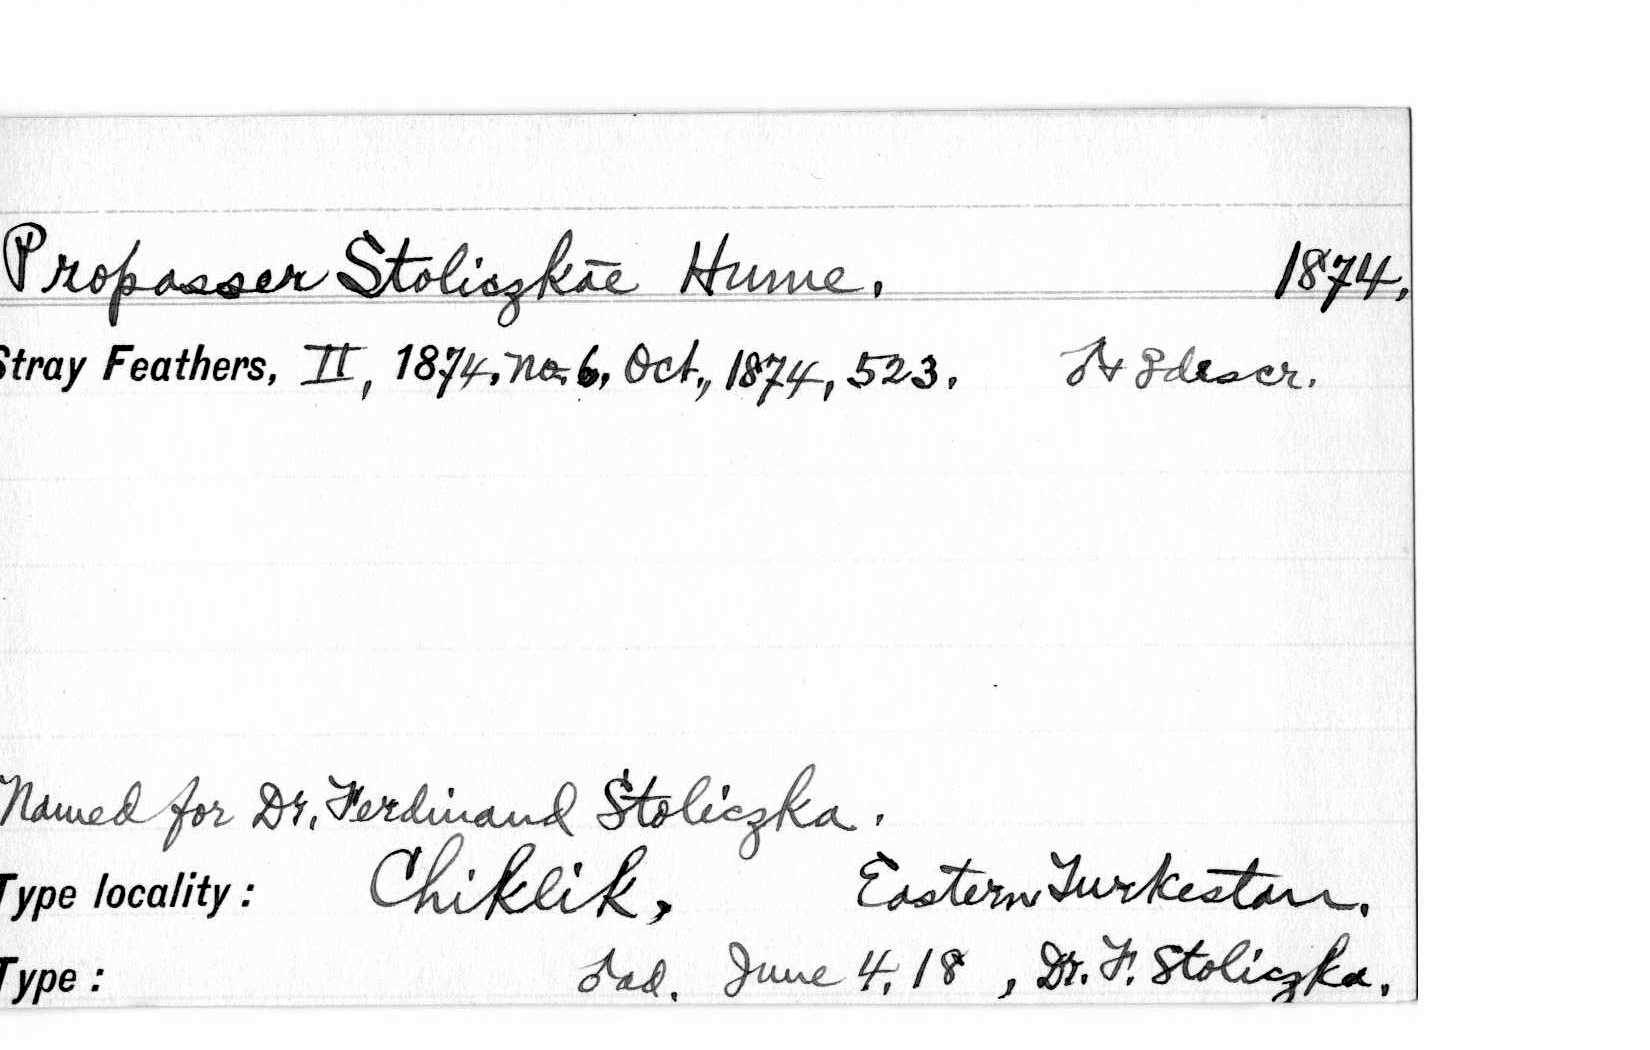 Propasser Stoliczkae Hume. 1874.
Stray Feathers, II, 1874, no. 6, Oct., 1874, 523. descr.
Named for Dr. Ferdinand Stoliczka.
Type locality: Chiklik, Eastern Turkestan.
Type: ad. June 4, 18 , Dr. F. Stoliczka.